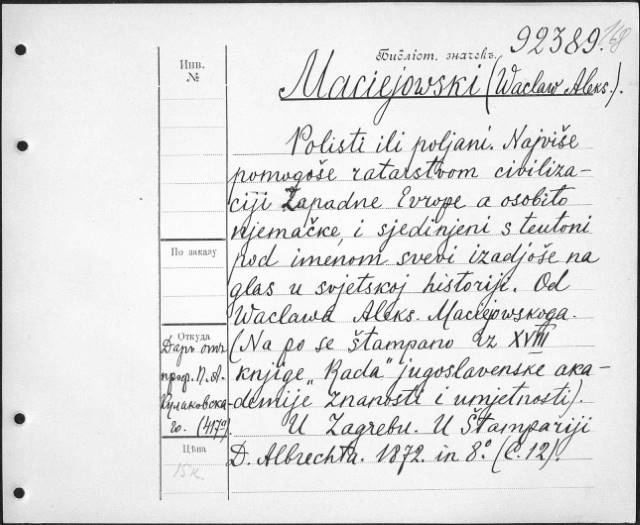 92389.
Библіот. значекъ.
Инв.
№
Maciejowski (Wacław Aleks.).
Polisti ili poljani. Najviše
pomogoše ratarstvom civiliza-
ciji Zapadne Evrope a osobito
njemačke, i sjedinjeni s teutoni
pod imenom svevi izadjoše na
glas u svjetskoj historiji. Od
Waclawa Aleks. Maciejowskoga.
(Na po se štampano iz XVIII
knjige „Rada" jugoslavenske aka-
demije znanosti i umjetnosti).
U Zagrebu. U Štampariji
D. Albrechta. 1872. in 8º. (C. 12).
По заказу
Откуда
Даръ отъ
проф. П. А.
Кулаковска-
го. (4179).
Цѣна
15к.